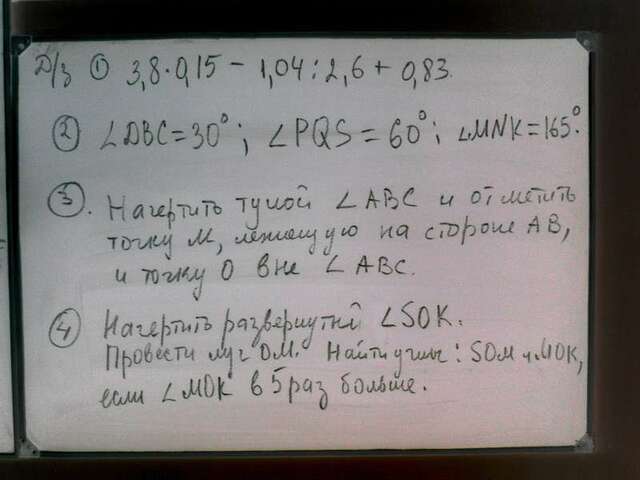 Д/з ① 3,8·0,15 − 1,04:2,6 + 0,83.
② ∠DBC=30°; ∠PQS=60°; ∠MNK=165°.
③. Начертить тупой ∠ABC и отметить
точку M, лежащую на стороне AB,
и точку O вне ∠ABC.
④ Начертить развернутый ∠SOK.
Провести луч OM. Найти углы: SOM и MOK,
если ∠MOK в 5 раз больше.